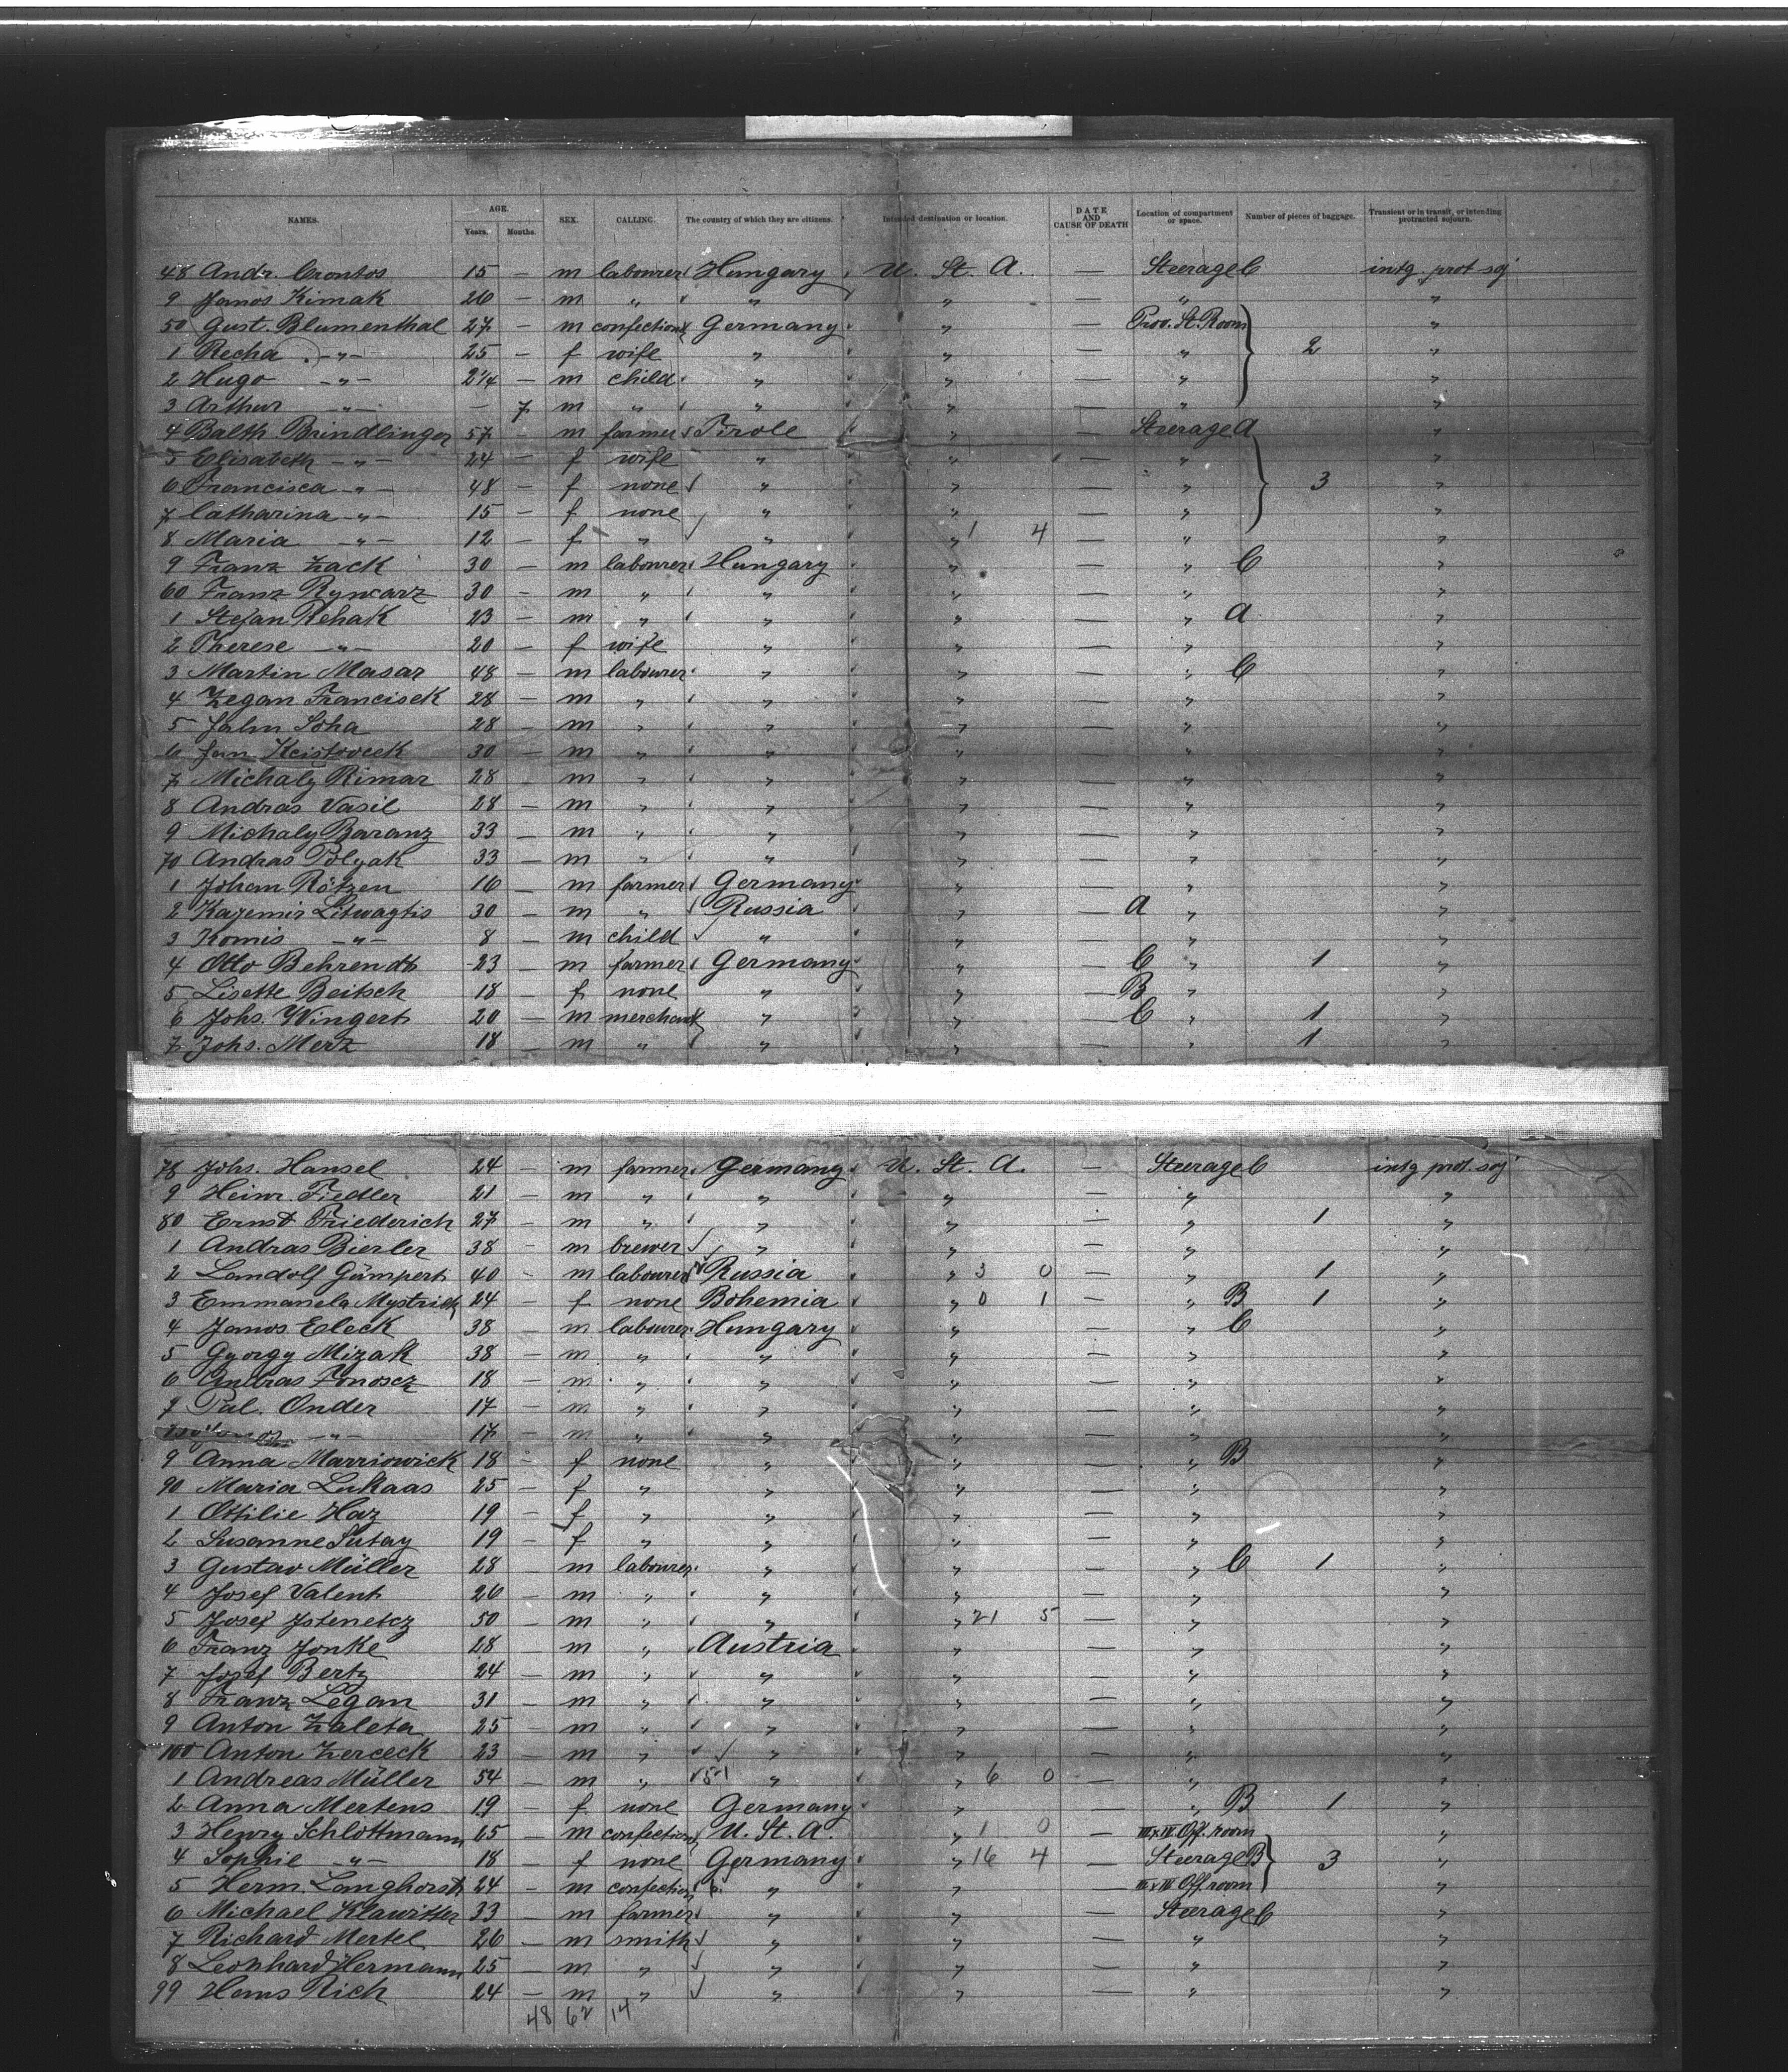 NAMES. AGE. Years. Months. SEX. CALLING. The country of which they are citizens. Intended destination or location. DATE AND CAUSE OF DEATH Location of compartment or space. Number of pieces of baggage. Transient or in transit, or intending protracted sojourn.
48 Andr. 15 — m labourer Hungary U. St. A. — Steerage C intg. prot soj
9 Janos Kimak 26 — m " " " — " "
50 Gust. Blumenthal 27 — m confection Germany " — Prov. St. Room "
1 Recha -"- 25 — f wife " " — " 2 "
2 Hugo -"- 2 1/4 — m child " " — " "
3 Arthur -"- — 7 m " " " — " "
4 Balth. Brindlinger 57 — m farmer Tirole " — Steerage A "
5 Elisabeth -"- 24 — f wife " " — " "
6 Francisca -"- 48 — f none " " — " 3 "
7 Catharina -"- 15 — f none " " — " "
8 Maria -"- 12 — f " " " 1 4 — " "
9 Franz Zack 30 — m labourer Hungary " — " C "
60 Franz Rywarz 30 — m " " " — " "
1 Stefan Rehak 23 — m " " " — " A "
2 Therese -"- 20 — f wife " " — " "
3 Martin Masar 48 — m labourer " " — " C "
4 Zegan Francisek 28 — m " " " — " "
5 Soha 28 — m " " " — " "
6 Jan 30 — m " " " — " "
7 Michaly Rimar 28 — m " " " — " "
8 Andras Vasil 28 — m " " " — " "
9 Michaly Baranz 33 — m " " " — " "
70 Andras Polyak 33 — m " " " — " "
1 Johan Rötzen 16 — m farmer Germany " — " "
2 Kazemir Litwagtis 30 — m " Russia " — A " "
3 Komis -"- 8 — m child " " — " "
4 Otto Behrendt 23 — m farmer Germany " — C " 1 "
5 Lisette Beitsch 18 — f none " " — B " "
6 Johs. Wingert 20 — m merchant " " — C " 1 "
7 Johs. Merz 18 — m " " " — " 1 "
78 Johs. Hansel 24 — m farmer Germany U. St. A. — Steerage C intg prot. soj
9 Heinr. Fiedler 21 — m " " " — " "
80 Ernst Friederich 27 — m " " " — " 1 "
1 Andras Bierler 38 — m brewer " " — " "
2 Landolf Gümpert 40 — m labourer Russia " 3 0 — " 1 "
3 Emmanuela 24 — f none Bohemia " 0 1 — " B 1 "
4 Janos Eleck 38 — m labourer Hungary " — " C "
5 Gyorgy Mizak 38 — m " " " — " "
6 Andras Fonoscz 18 — m " " " — " "
7 Pal. Onder 17 — m " " " — " "
-"- 17 — m " " " — " "
9 Anna Marriowick 18 — f none " " — " B "
90 Maria Lukaas 25 — f " " " — " "
1 Ottilie Haz 19 — f " " " — " "
2 Susanne Sutay 19 — f " " " — " "
3 Gustav Müller 28 — m labourer " " — " C 1 "
4 Josef Valent 26 — m " " " — " "
5 Josef Istenetcz 50 — m " " " 21 5 — " "
6 Franz Jonke 28 — m " Austria " — " "
7 Josef Bertz 24 — m " " " — " "
8 Franz Legan 31 — m " " " — " "
9 Anton Zaleta 25 — m " " " — " "
100 Anton Zerceck 23 — m " " " — " "
1 Andreas Müller 54 — m " 51 " " 6 0 — " "
2 Anna Mertens 19 — f none Germany " — " B 1 "
3 Henry Schlottmann 25 — m confection U. St. A. " 1 0 — Off. room "
4 Sophie -"- 18 — f none Germany " 16 4 — Steerage B 3 "
5 Herm. Langhorst 24 — m confection " " — Off. room "
6 Michael Klawitter 33 — m farmer " " — Steerage C "
7 Richard Mertel 26 — m smith " " — " "
8 Leonhard Hermann 25 — m " " " — " "
99 Hans Rich 24 — m " " " — " "
48 62 14